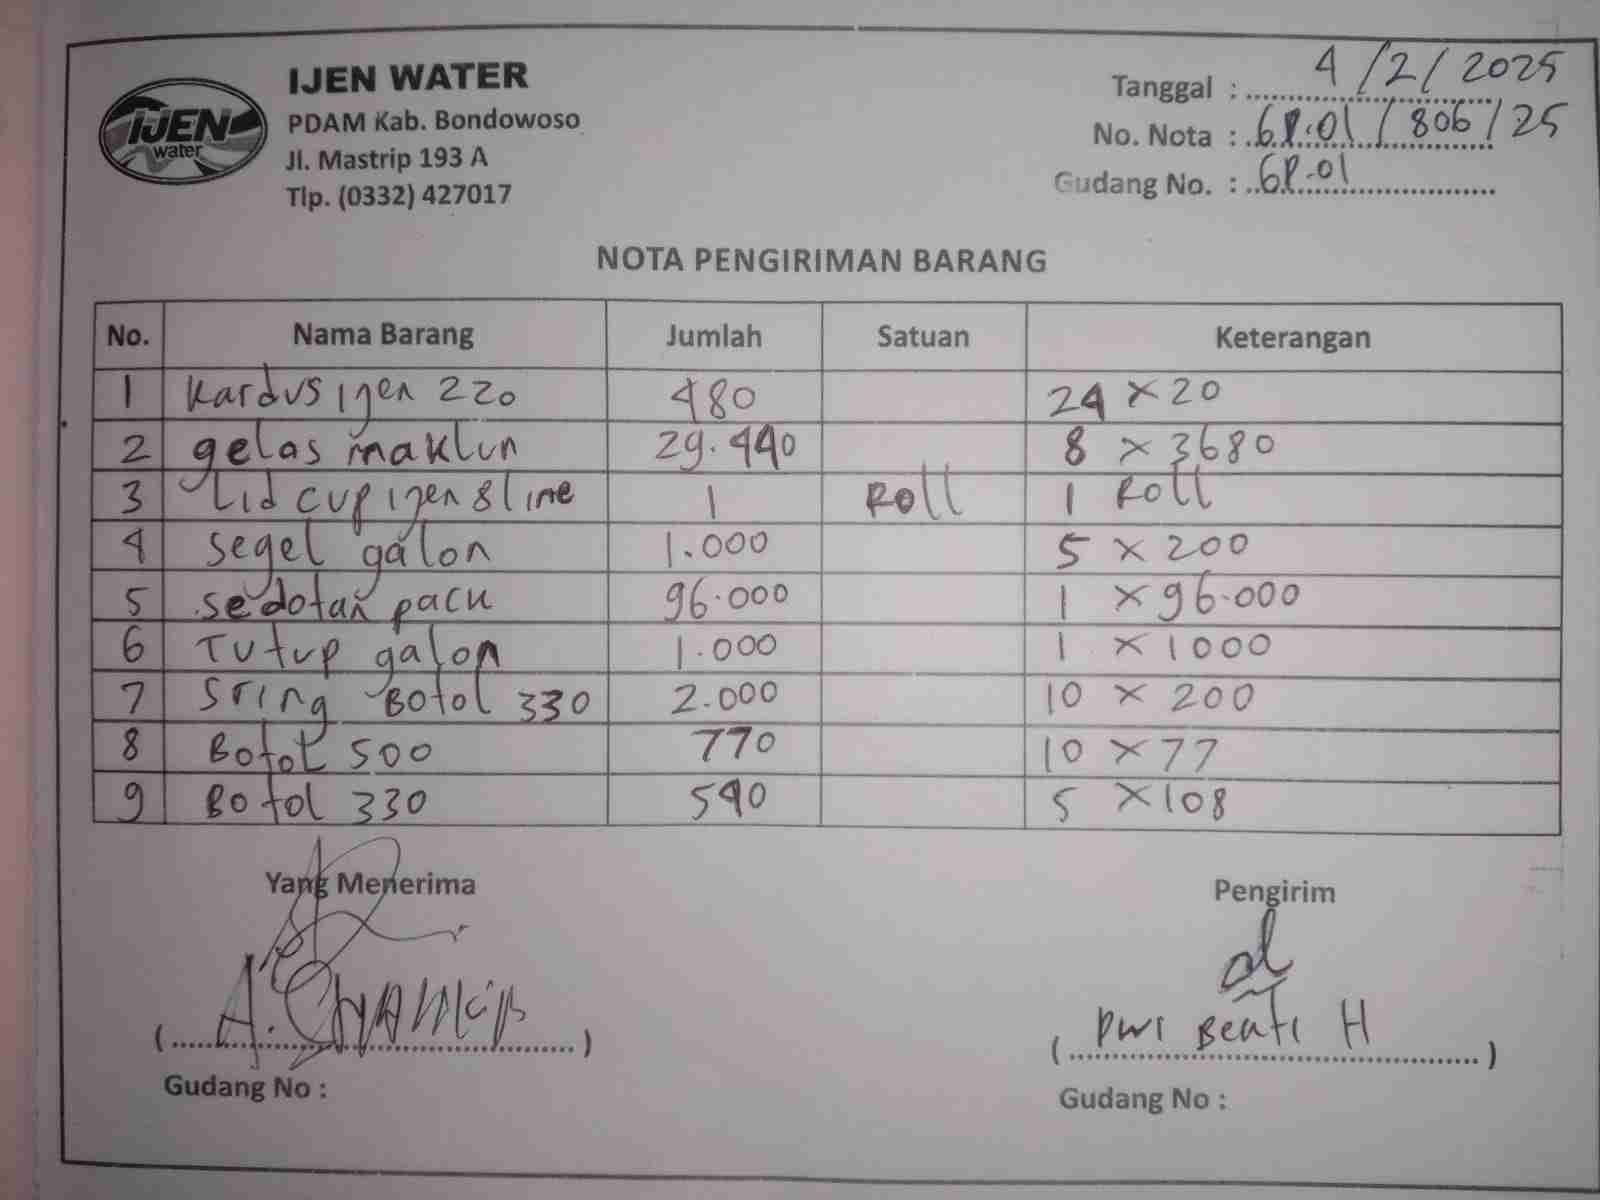 IJEN WATER
PDAM Kab. Bondowoso
Jl. Mastrip 193 A
Tlp. (0332) 427017
IJEN
water
Tanggal : 4/2/2025
No. Nota : GP.01/806/25
Gudang No. : GP.01
NOTA PENGIRIMAN BARANG
No. Nama Barang Jumlah Satuan Keterangan
1 Kardus ijen 220 480 24 x 20
2 gelas maklun 29.440 8 x 3680
3 Lid cup ijen 8 line 1 Roll 1 Roll
4 segel galon 1.000 5 x 200
5 sedotan pack 96.000 1 x 96.000
6 Tutup galon 1.000 1 x 1000
7 Sring Botol 330 2.000 10 x 200
8 Botol 500 770 10 x 77
9 Botol 330 540 5 x 108
Yang Menerima Pengirim
( A. ) ( Dwi Beati H )
Gudang No : Gudang No :